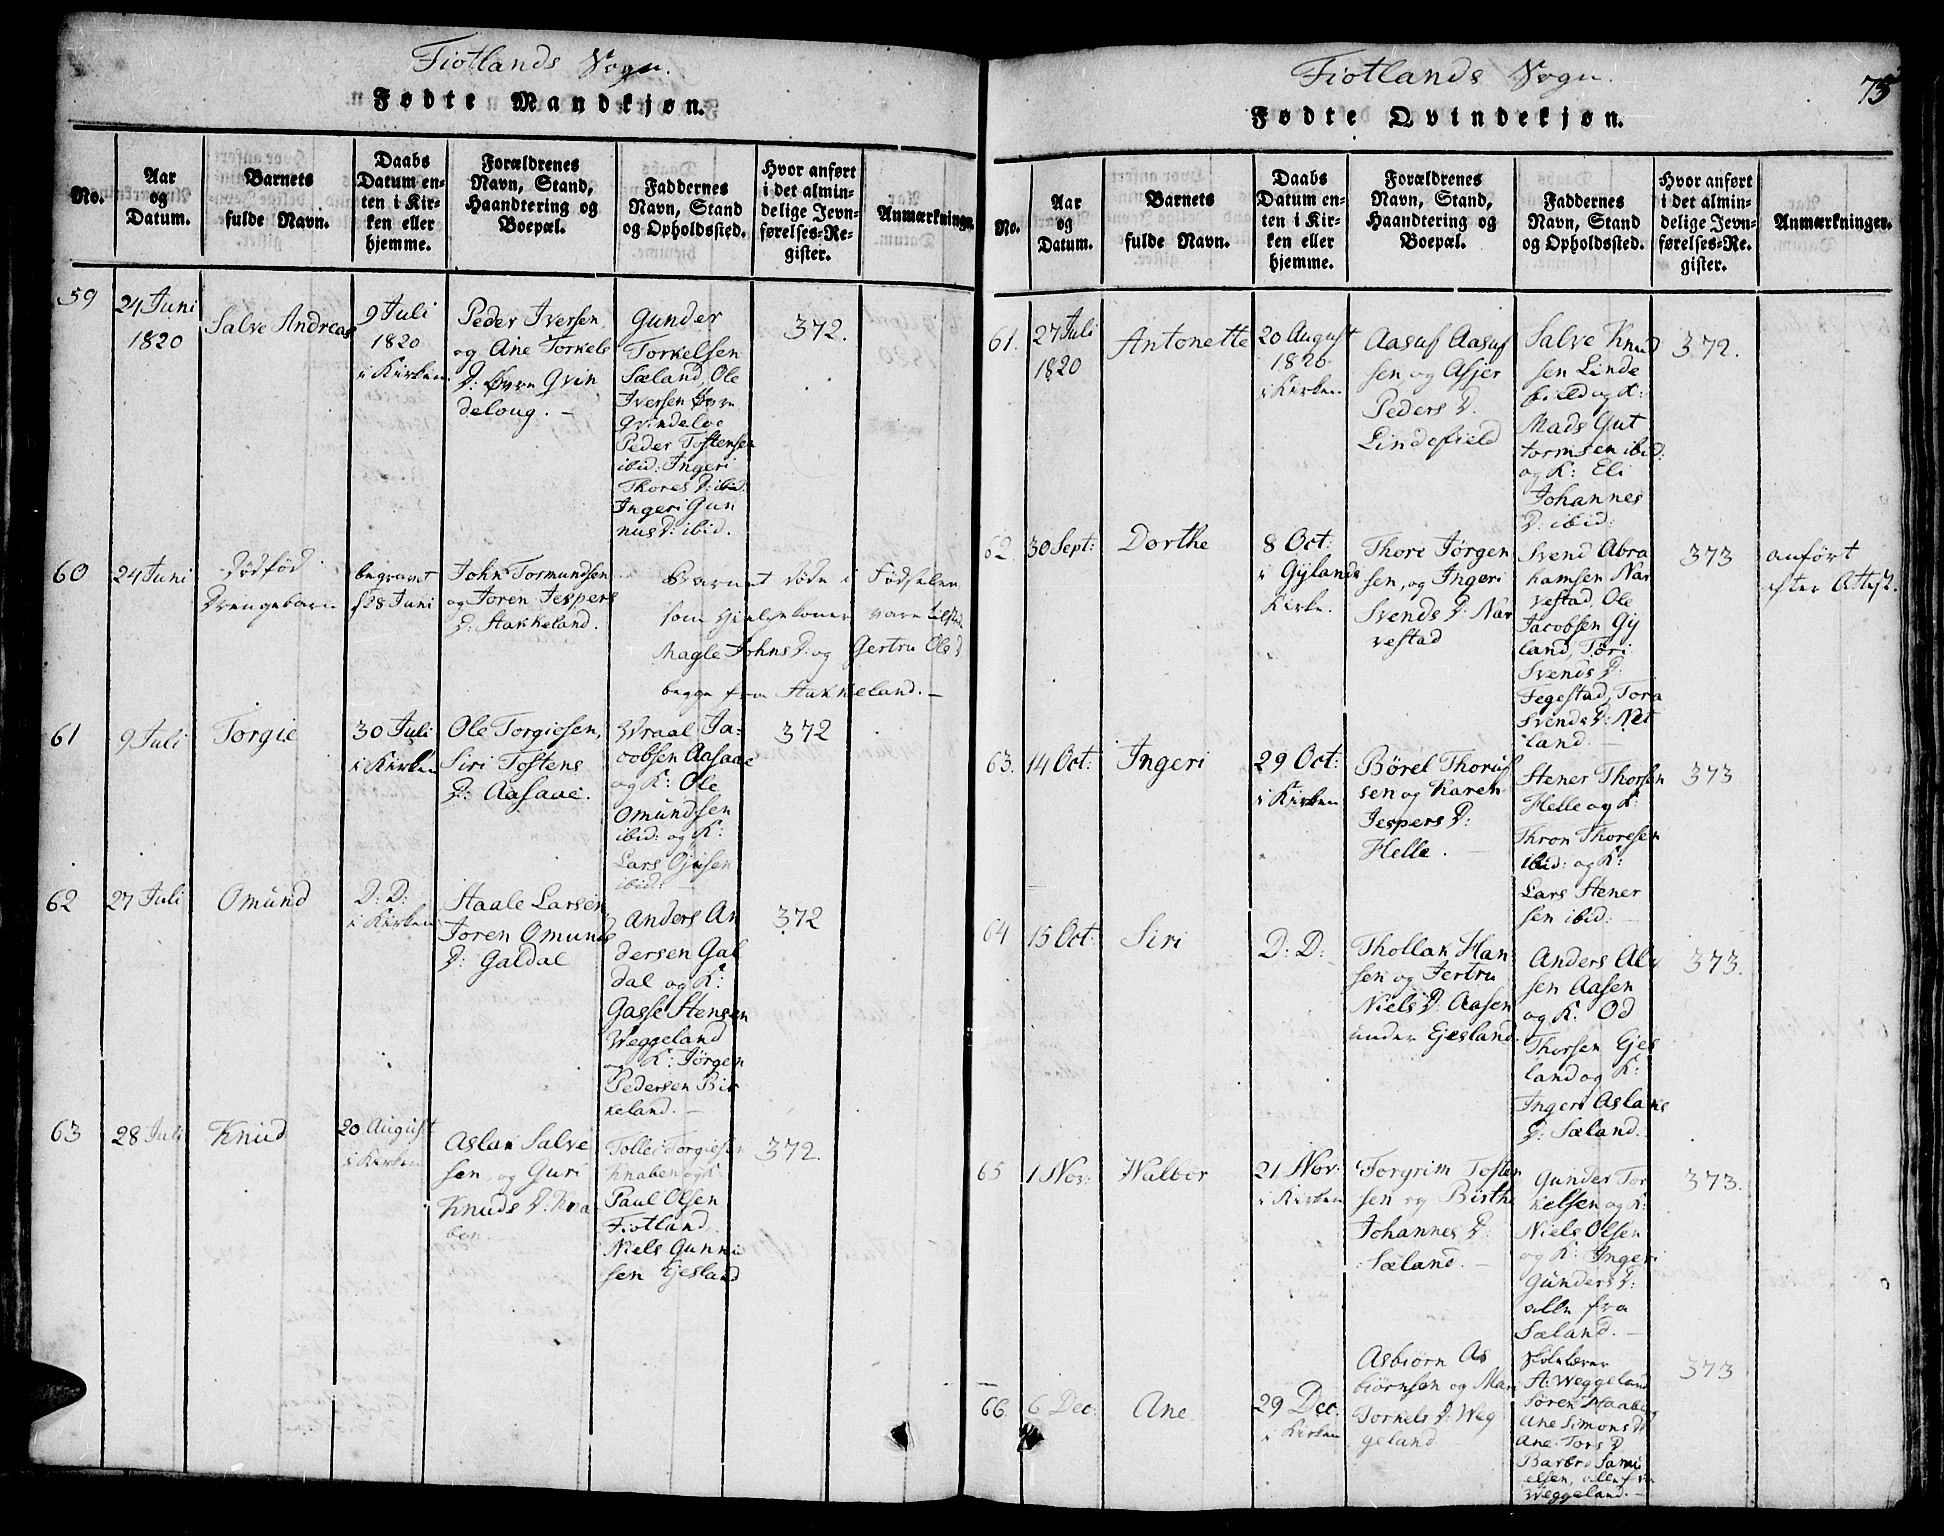 Fiotlands Sogn.
Fødte Mandkjøn.
No.
Aar
og
Datum.
Barnets
fulde Navn.
Daabs
Datum en-
ten i Kir-
ken eller
hjemme.
Forældrenes
Navn, Stand,
Haandtering og
Boepæl.
Faddernes
Navn, Stand
og Opholdssted.
Hvor anført
i det almin-
delige Jevn-
førelses-Re-
gister.
Anmærkninger.
59
24 Juni
1820
Salve Andreas
9 Juli
1820
i Kirken
Peder Iversen,
og Ane Torkels
D: Øvre Qvin
deloug. –
Gunder
Torkelsen
Sæland, Ole
Iversen Øvre
Qvindeloe
Peder Tostensen
ibid: Ingeri
Thores D: ibid:
Ingeri Gun
nus D: ibid.
372.
60
24 Juni
Dødfød
Drengebarn
begravet
d 28 Juni
John Tormundsen
og Joren Jespers
D: Stakkeland.
Barnet døde i Fødselen
som Hielpekoner vare
Magle Johns D: og Gertru Ole D
begge fra Stakkeland. –
61
9 Juli
Torgie
30 Juli
i Kirken
Ole Torgiesen,
Siri Tostens
D: Aasaae.
Wraal Ja-
cobsen Aasaae
og K: Ole
Omundsen
ibid: og K:
Lars
ibid: –
372
62
27 Juli
Omund
D: D:
i Kirken
Staale Larsen
Joren Omunds
D: Galdal
Anders An
dersen Gal
dal og K:
Gasse Stensen
Weggeland
og K: Jørgen
Pedersen Bir
keland. –
372
63
28 Juli
Knud
20 August
i Kirken
Aslak Salve
sen, og Guri
Knuds D: Kna-
ben. –
Tollef Torgiesen
Knaben og K:
Paul Olsen
Fiotland.
Niels Gunni
sen Ejesland
372.
Fiotlands Sogn.
75
Fødte Qvindekjøn.
No.
Aar
og
Datum.
Barnets
fulde Navn.
Daabs
Datum en-
ten i Kir-
ken eller
hjemme.
Forældrenes
Navn, Stand,
Haandtering og
Boepæl.
Faddernes
Navn, Stand
og Opholdssted.
Hvor anført
i det almin-
delige Jevn-
førelses-Re-
gister.
Anmærkninger.
61.
27 Juli
1820
Antonette
20 August
1820
i Kirken.
Aasuf Aasuf
sen, og Asjer
Peders D.
Lindefield
Salve Knud
sen Linde
field og K:
Mads Gut
tormsen ibid:
og K: Eli
Johannes
D: ibid:
372.
62.
30 Sept:
Dorthe
8 Oct:
i Gylands
Kirke.
Thore Jørgen
sen, og Ingeri
Svends D: Nar
vestad
Svend Abra
hamsen Nar
vestad, Ole
Jacobsen Gy
land, Tori
Svends D:
Fegestad, Tora
Svends D: Net
land. –
373
anført
efter Attest.
63.
14 Oct:
Ingeri
29 Oct:
i Kirken
Børel Thorus
sen og Karen
Jespers D:
Helle. –
Stener Thorsen
Helle og K:
Thron Thoresen
ibid: og K:
Lars Stener
sen ibid: –
373
64
15 Oct:
Siri
D: D:
Thollak Han
sen og Jertru
Niels D: Aasen
under Ejesland.
Anders Alv
sen Aasen
og K: Od
Thorsen Ejes
land og K:
Ingeri Aslaks
D: Sæland.
373.
65
1 Nov:
Walbor
21 Nov:
i Kirken
Torgrim Tosten
sen og Birthe
Johannes D:
Sæland. –
Gunder Tor
kelsen og K:
Niels Olsen
og K: Ingeri
Gunders D:
alle fra
Sæland. –
373.
66.
6 Dec:
Ane
29 Dec:
i Kirken
Asbiørn As
biørnsen og Mari
Torkels D: Weg
geland
Skolelærer
A: Weggeland
Søren Haaberg
Ane Simons D:
Ane Tors D
Barbro Samu
elsen, alle fra
Weggeland. –
373